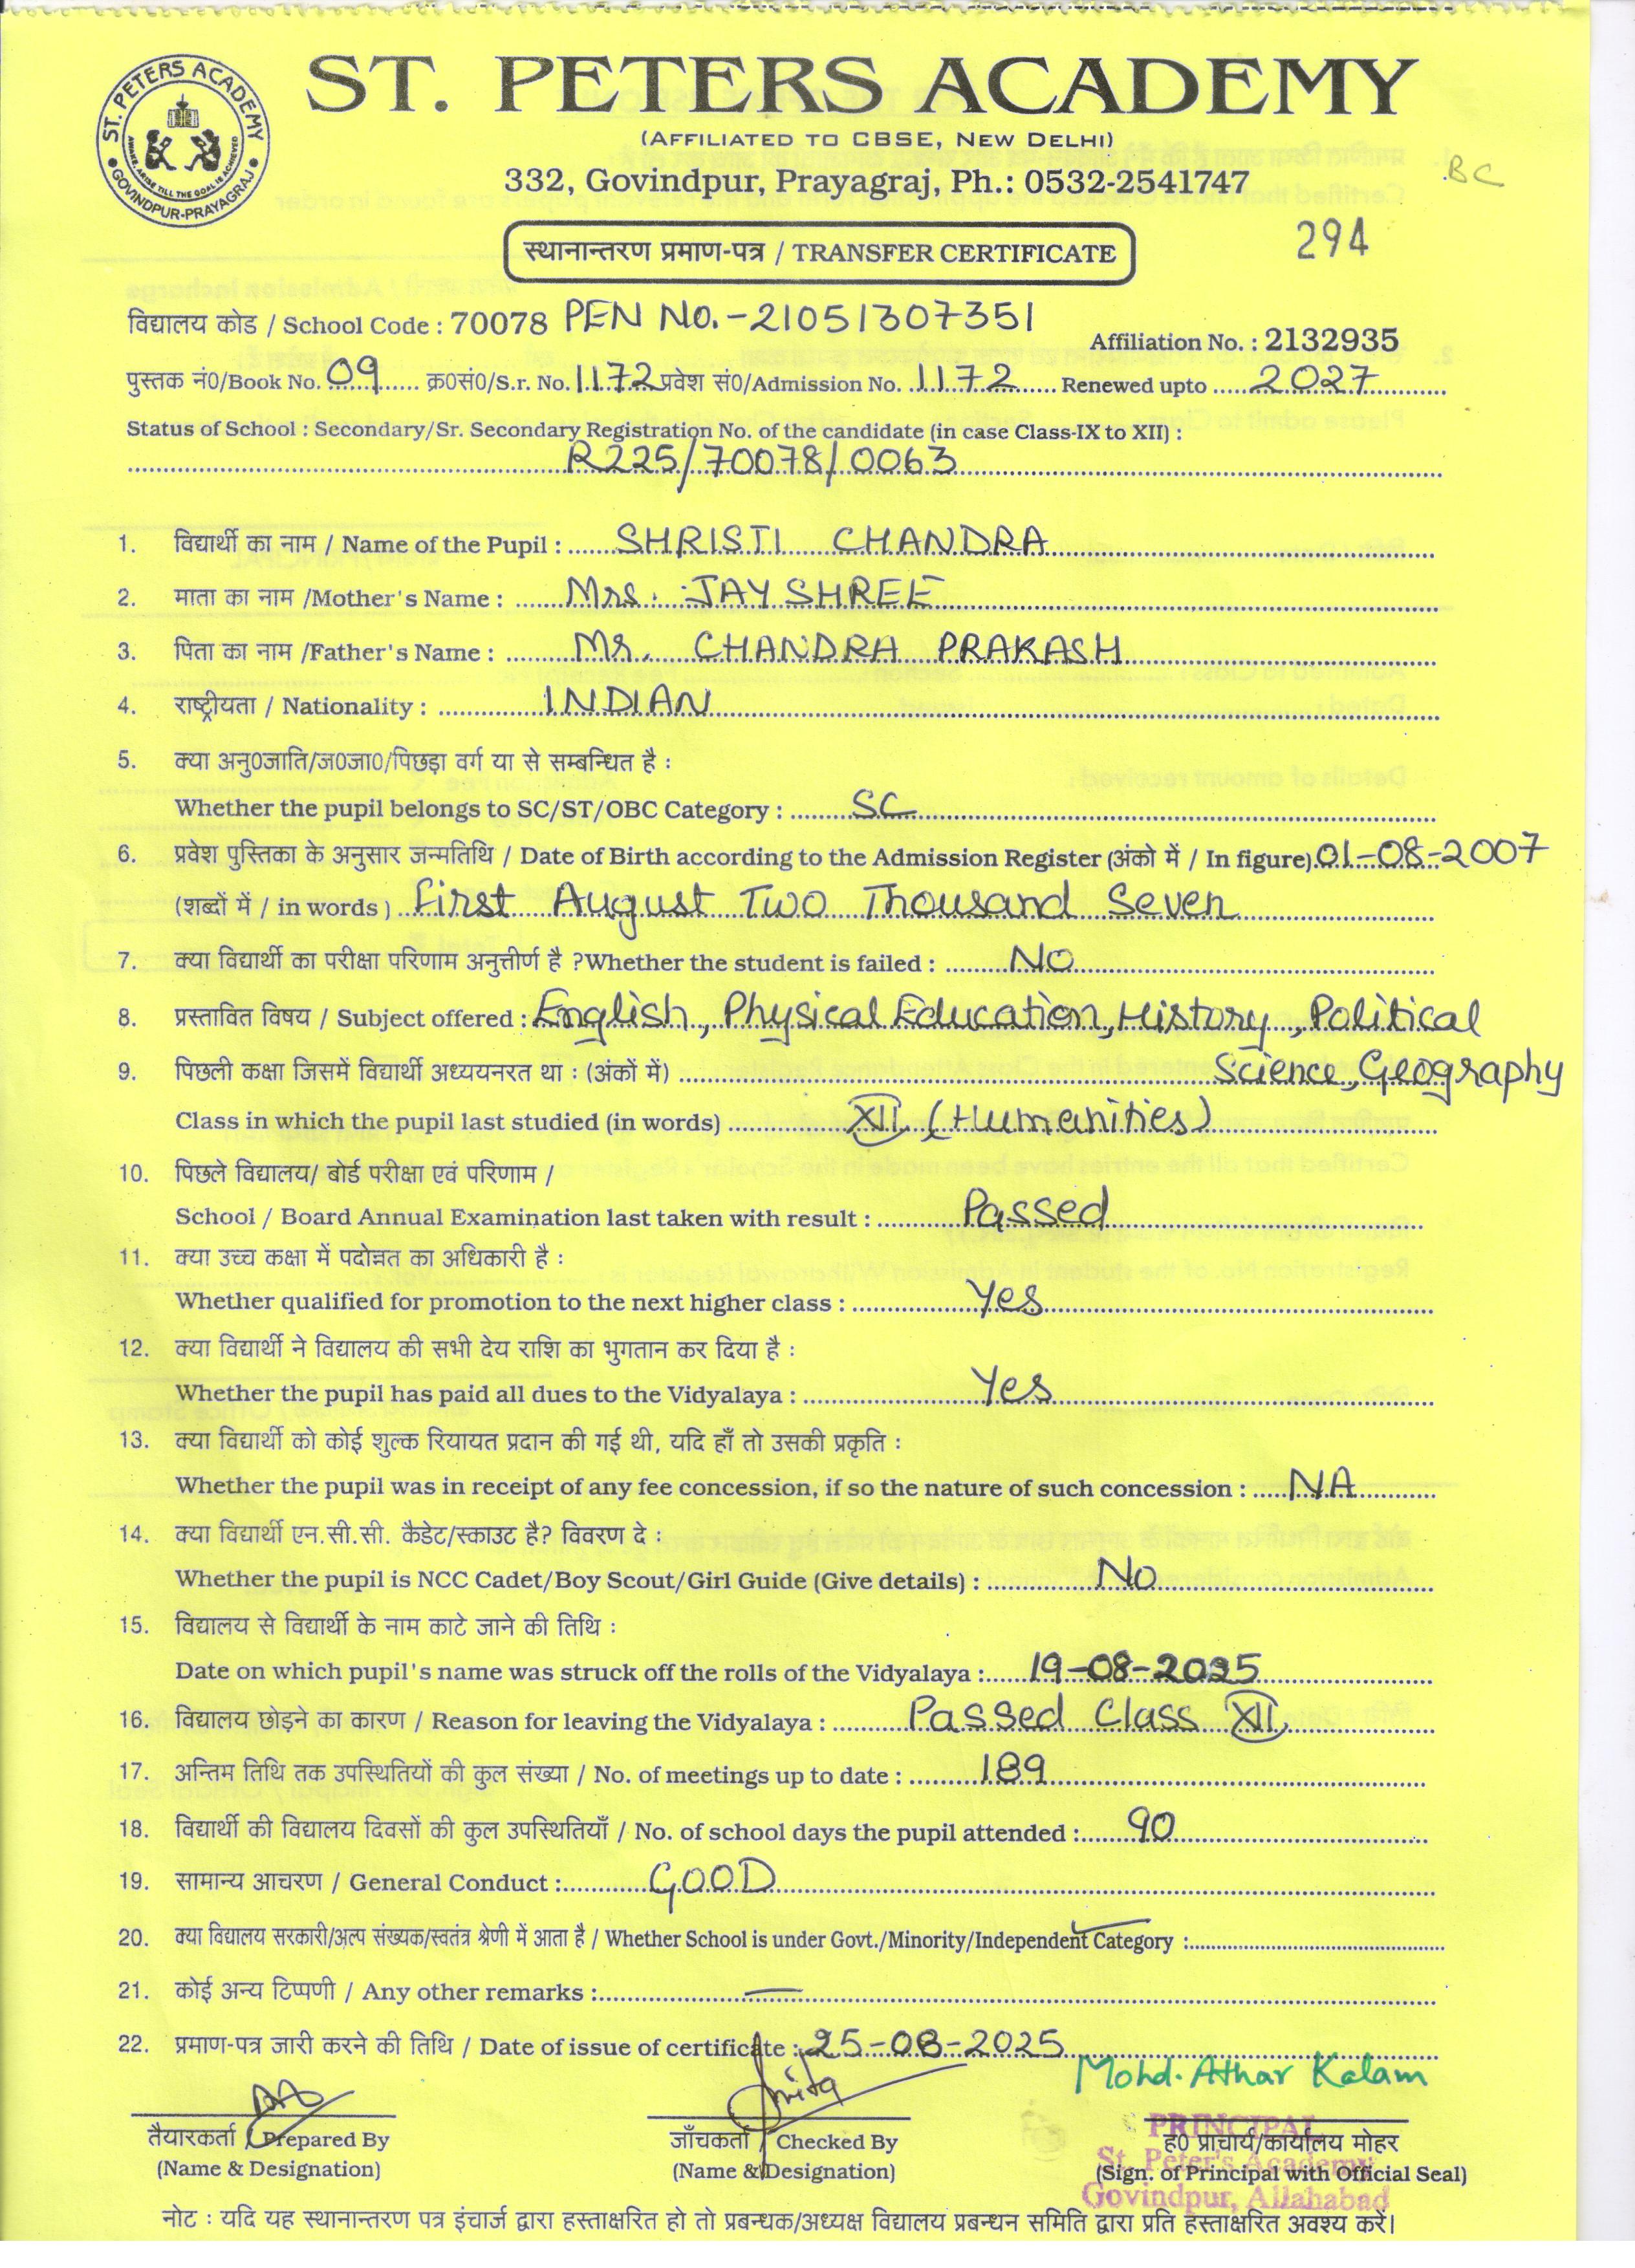 ST. PETERS ACADEMY
ST. PETERS ACADEMY
AWAKE, ARISE TILL THE GOAL IS ACHIEVED
GOVINDPUR-PRAYAGRAJ
(AFFILIATED TO CBSE, NEW DELHI)
332, Govindpur, Prayagraj, Ph.: 0532-2541747
BC
294
स्थानान्तरण प्रमाण-पत्र / TRANSFER CERTIFICATE
विद्यालय कोड / School Code : 70078 PEN No.-21051307351
Affiliation No. : 2132935
पुस्तक नं0/Book No. 09 क्र0सं0/S.r. No. 1172 प्रवेश सं0/Admission No. 1172 Renewed upto 2027
Status of School : Secondary/Sr. Secondary Registration No. of the candidate (in case Class-IX to XII) :
R225/70078/0063
1. विद्यार्थी का नाम / Name of the Pupil : SHRISTI CHANDRA
2. माता का नाम /Mother's Name : Mrs. JAYSHREE
3. पिता का नाम /Father's Name : Mr. CHANDRA PRAKASH
4. राष्ट्रीयता / Nationality : INDIAN
5. क्या अनु0जाति/ज0जा0/पिछड़ा वर्ग या से सम्बन्धित है :
Whether the pupil belongs to SC/ST/OBC Category : SC
6. प्रवेश पुस्तिका के अनुसार जन्मतिथि / Date of Birth according to the Admission Register (अंको में / In figure) 01-08-2007
(शब्दों में / in words ) First August Two Thousand Seven
7. क्या विद्यार्थी का परीक्षा परिणाम अनुत्तीर्ण है ?Whether the student is failed : NO
8. प्रस्तावित विषय / Subject offered : English, Physical Education, History, Political
9. पिछली कक्षा जिसमें विद्यार्थी अध्ययनरत था : (अंकों में) Science, Geography
Class in which the pupil last studied (in words) XII (Humanities)
10. पिछले विद्यालय/ बोर्ड परीक्षा एवं परिणाम /
School / Board Annual Examination last taken with result : Passed
11. क्या उच्च कक्षा में पदोन्नत का अधिकारी है :
Whether qualified for promotion to the next higher class : Yes
12. क्या विद्यार्थी ने विद्यालय की सभी देय राशि का भुगतान कर दिया है :
Whether the pupil has paid all dues to the Vidyalaya : Yes
13. क्या विद्यार्थी को कोई शुल्क रियायत प्रदान की गई थी, यदि हाँ तो उसकी प्रकृति :
Whether the pupil was in receipt of any fee concession, if so the nature of such concession : NA
14. क्या विद्यार्थी एन.सी.सी. कैडेट/स्काउट है? विवरण दे :
Whether the pupil is NCC Cadet/Boy Scout/Girl Guide (Give details) : No
15. विद्यालय से विद्यार्थी के नाम काटे जाने की तिथि :
Date on which pupil's name was struck off the rolls of the Vidyalaya : 19-08-2025
16. विद्यालय छोड़ने का कारण / Reason for leaving the Vidyalaya : Passed Class XII
17. अन्तिम तिथि तक उपस्थितियों की कुल संख्या / No. of meetings up to date : 189
18. विद्यार्थी की विद्यालय दिवसों की कुल उपस्थितियाँ / No. of school days the pupil attended : 90
19. सामान्य आचरण / General Conduct : GOOD
20. क्या विद्यालय सरकारी/अल्प संख्यक/स्वतंत्र श्रेणी में आता है / Whether School is under Govt./Minority/Independent Category :
21. कोई अन्य टिप्पणी / Any other remarks : —
22. प्रमाण-पत्र जारी करने की तिथि / Date of issue of certificate : 25-08-2025
Mohd. Athar Kalam
तैयारकर्ता / Prepared By जाँचकर्ता / Checked By ह0 प्राचार्य/कार्यालय मोहर
(Name & Designation) (Name & Designation) (Sign. of Principal with Official Seal)
PRINCIPAL
St. Peter's Academy
Govindpur, Allahabad
नोट : यदि यह स्थानान्तरण पत्र इंचार्ज द्वारा हस्ताक्षरित हो तो प्रबन्धक/अध्यक्ष विद्यालय प्रबन्धन समिति द्वारा प्रति हस्ताक्षरित अवश्य करें।